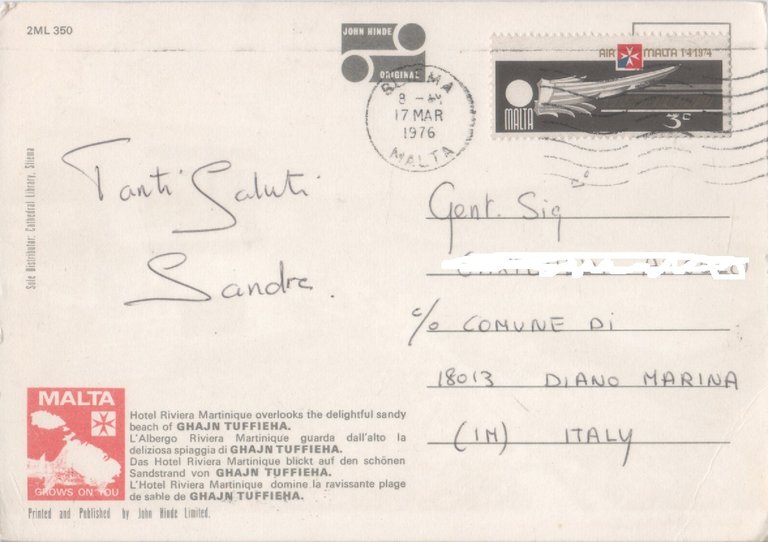 2ML 350
JOHN HINDE
ORIGINAL
AIR MALTA 1·4·1974
MALTA
3c
8 - AM
17 MAR
1976
MALTA
Sole Distributor: Cathedral Library, Sliema
Tanti Saluti
Sandra.
Gent. Sig
c/o COMUNE Di
18013 DIANO MARINA
(IM) ITALY
MALTA
GROWS ON YOU
Hotel Riviera Martinique overlooks the delightful sandy
beach of GHAJN TUFFIEHA.
L'Albergo Riviera Martinique guarda dall'alto la
deliziosa spiaggia di GHAJN TUFFIEHA.
Das Hotel Riviera Martinique blickt auf den schönen
Sandstrand von GHAJN TUFFIEHA.
L'Hotel Riviera Martinique domine la ravissante plage
de sable de GHAJN TUFFIEHA.
Printed and Published by John Hinde Limited.